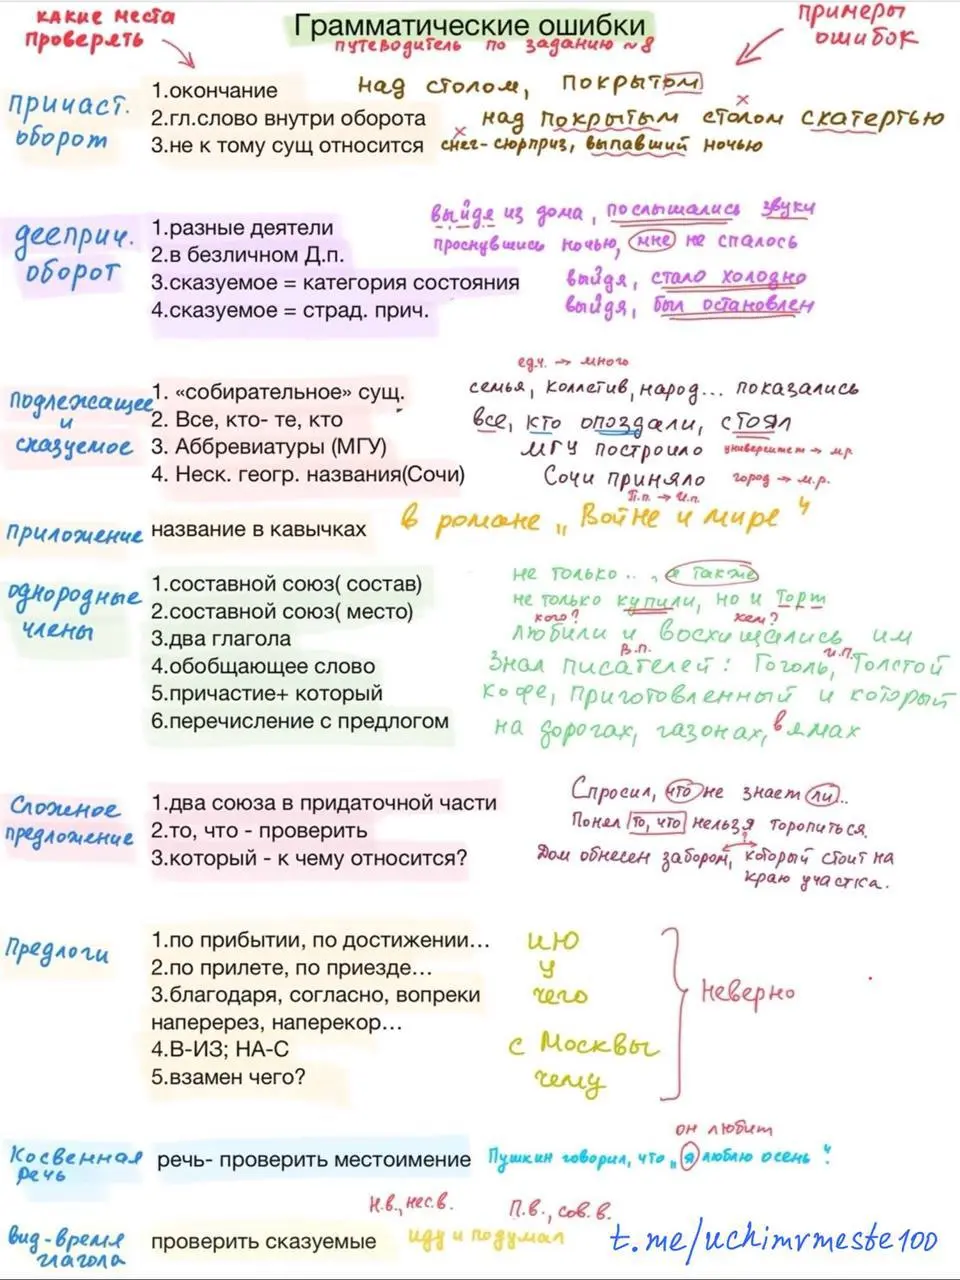 какие места
проверять
Грамматические ошибки
путеводитель по заданию №8
примеры
ошибок
причаст.
оборот
1.окончание
2.гл.слово внутри оборота
3.не к тому сущ относится
над столом, покрытом
над покрытым столом скатертью
снег-сюрприз, выпавший ночью
дееприч.
оборот
1.разные деятели
2.в безличном Д.п.
3.сказуемое = категория состояния
4.сказуемое = страд. прич.
выйдя из дома, послышались звуки
проснувшись ночью, мне не спалось
выйдя, стало холодно
выйдя, был остановлен
подлежащее
и
сказуемое
1. «собирательное» сущ.
2. Все, кто- те, кто
3. Аббревиатуры (МГУ)
4. Неск. геогр. названия(Сочи)
ед.ч. → много
семья, коллетив, народ... показались
все, кто опоздали, стоял
МГУ построило университет → м.р.
Сочи приняло город → м.р.
приложение
название в кавычках
П.п. → И.п.
в романе „Войне и мире"
однородные
члены
1.составной союз( состав)
2.составной союз( место)
3.два глагола
4.обобщающее слово
5.причастие+ который
6.перечисление с предлогом
не только .., а также
не только купили, но и торт
кого? кем?
любили и восхищались им
В.п. И.п.
Знал писателей: Гоголь, Толстой
кофе, приготовленный и который
на дорогах, газонах, в ямах
Сложное
предложение
1.два союза в придаточной части
2.то, что - проверить
3.который - к чему относится?
Спросил, что не знает ли..
Понял то, что нельзя торопиться.
?
Дом обнесен забором, который стоит на
краю участка.
Предлоги
1.по прибытии, по достижении...
2.по прилете, по приезде...
3.благодаря, согласно, вопреки
наперерез, наперекор...
4.В-ИЗ; НА-С
5.взамен чего?
ию
у
чего
с Москвы
чему
неверно
Косвенная
речь
речь- проверить местоимение
он любит
Пушкин говорил, что „я люблю осень".
вид-время
глагола
проверить сказуемые
Н.в., нес.в. П.в., сов.в.
иду и подумал
t.me/uchimvmeste100